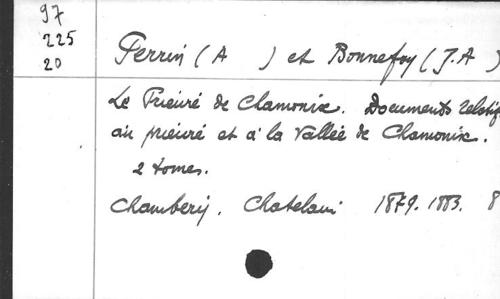 97
225
20
Perrin (A ) et Bonnefoy (J.A )
Le Prieuré de Chamonix. Documents relatifs
au prieuré et à la Vallée de Chamonix.
2 tomes.
Chambéry. Chatelain 1879. 1883. 8